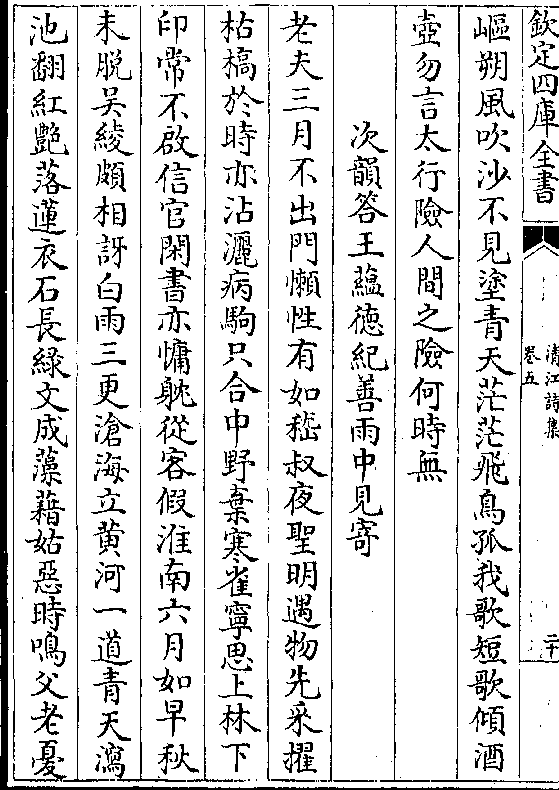 欽定四庫全書
清江詩集
卷五
二十
嶇朔風吹沙不見塗青天茫茫飛鳥孤我歌短歌傾酒
壺勿言太行險人間之險何時無
次韻答王藴徳紀善雨中見寄
老夫三月不出門懶性有如嵇叔夜聖明遇物先采擢
枯槁於時亦沾灑病駒只合中野棄寒雀寧思上林下
印常不啟信官閑書亦慵躭從客假淮南六月如早秋
未脱吴綾頗相訝白雨三更滄海立黄河一道青天瀉
池翻紅艷落蓮衣石長緑文成藻藉姑惡時鳴父老憂